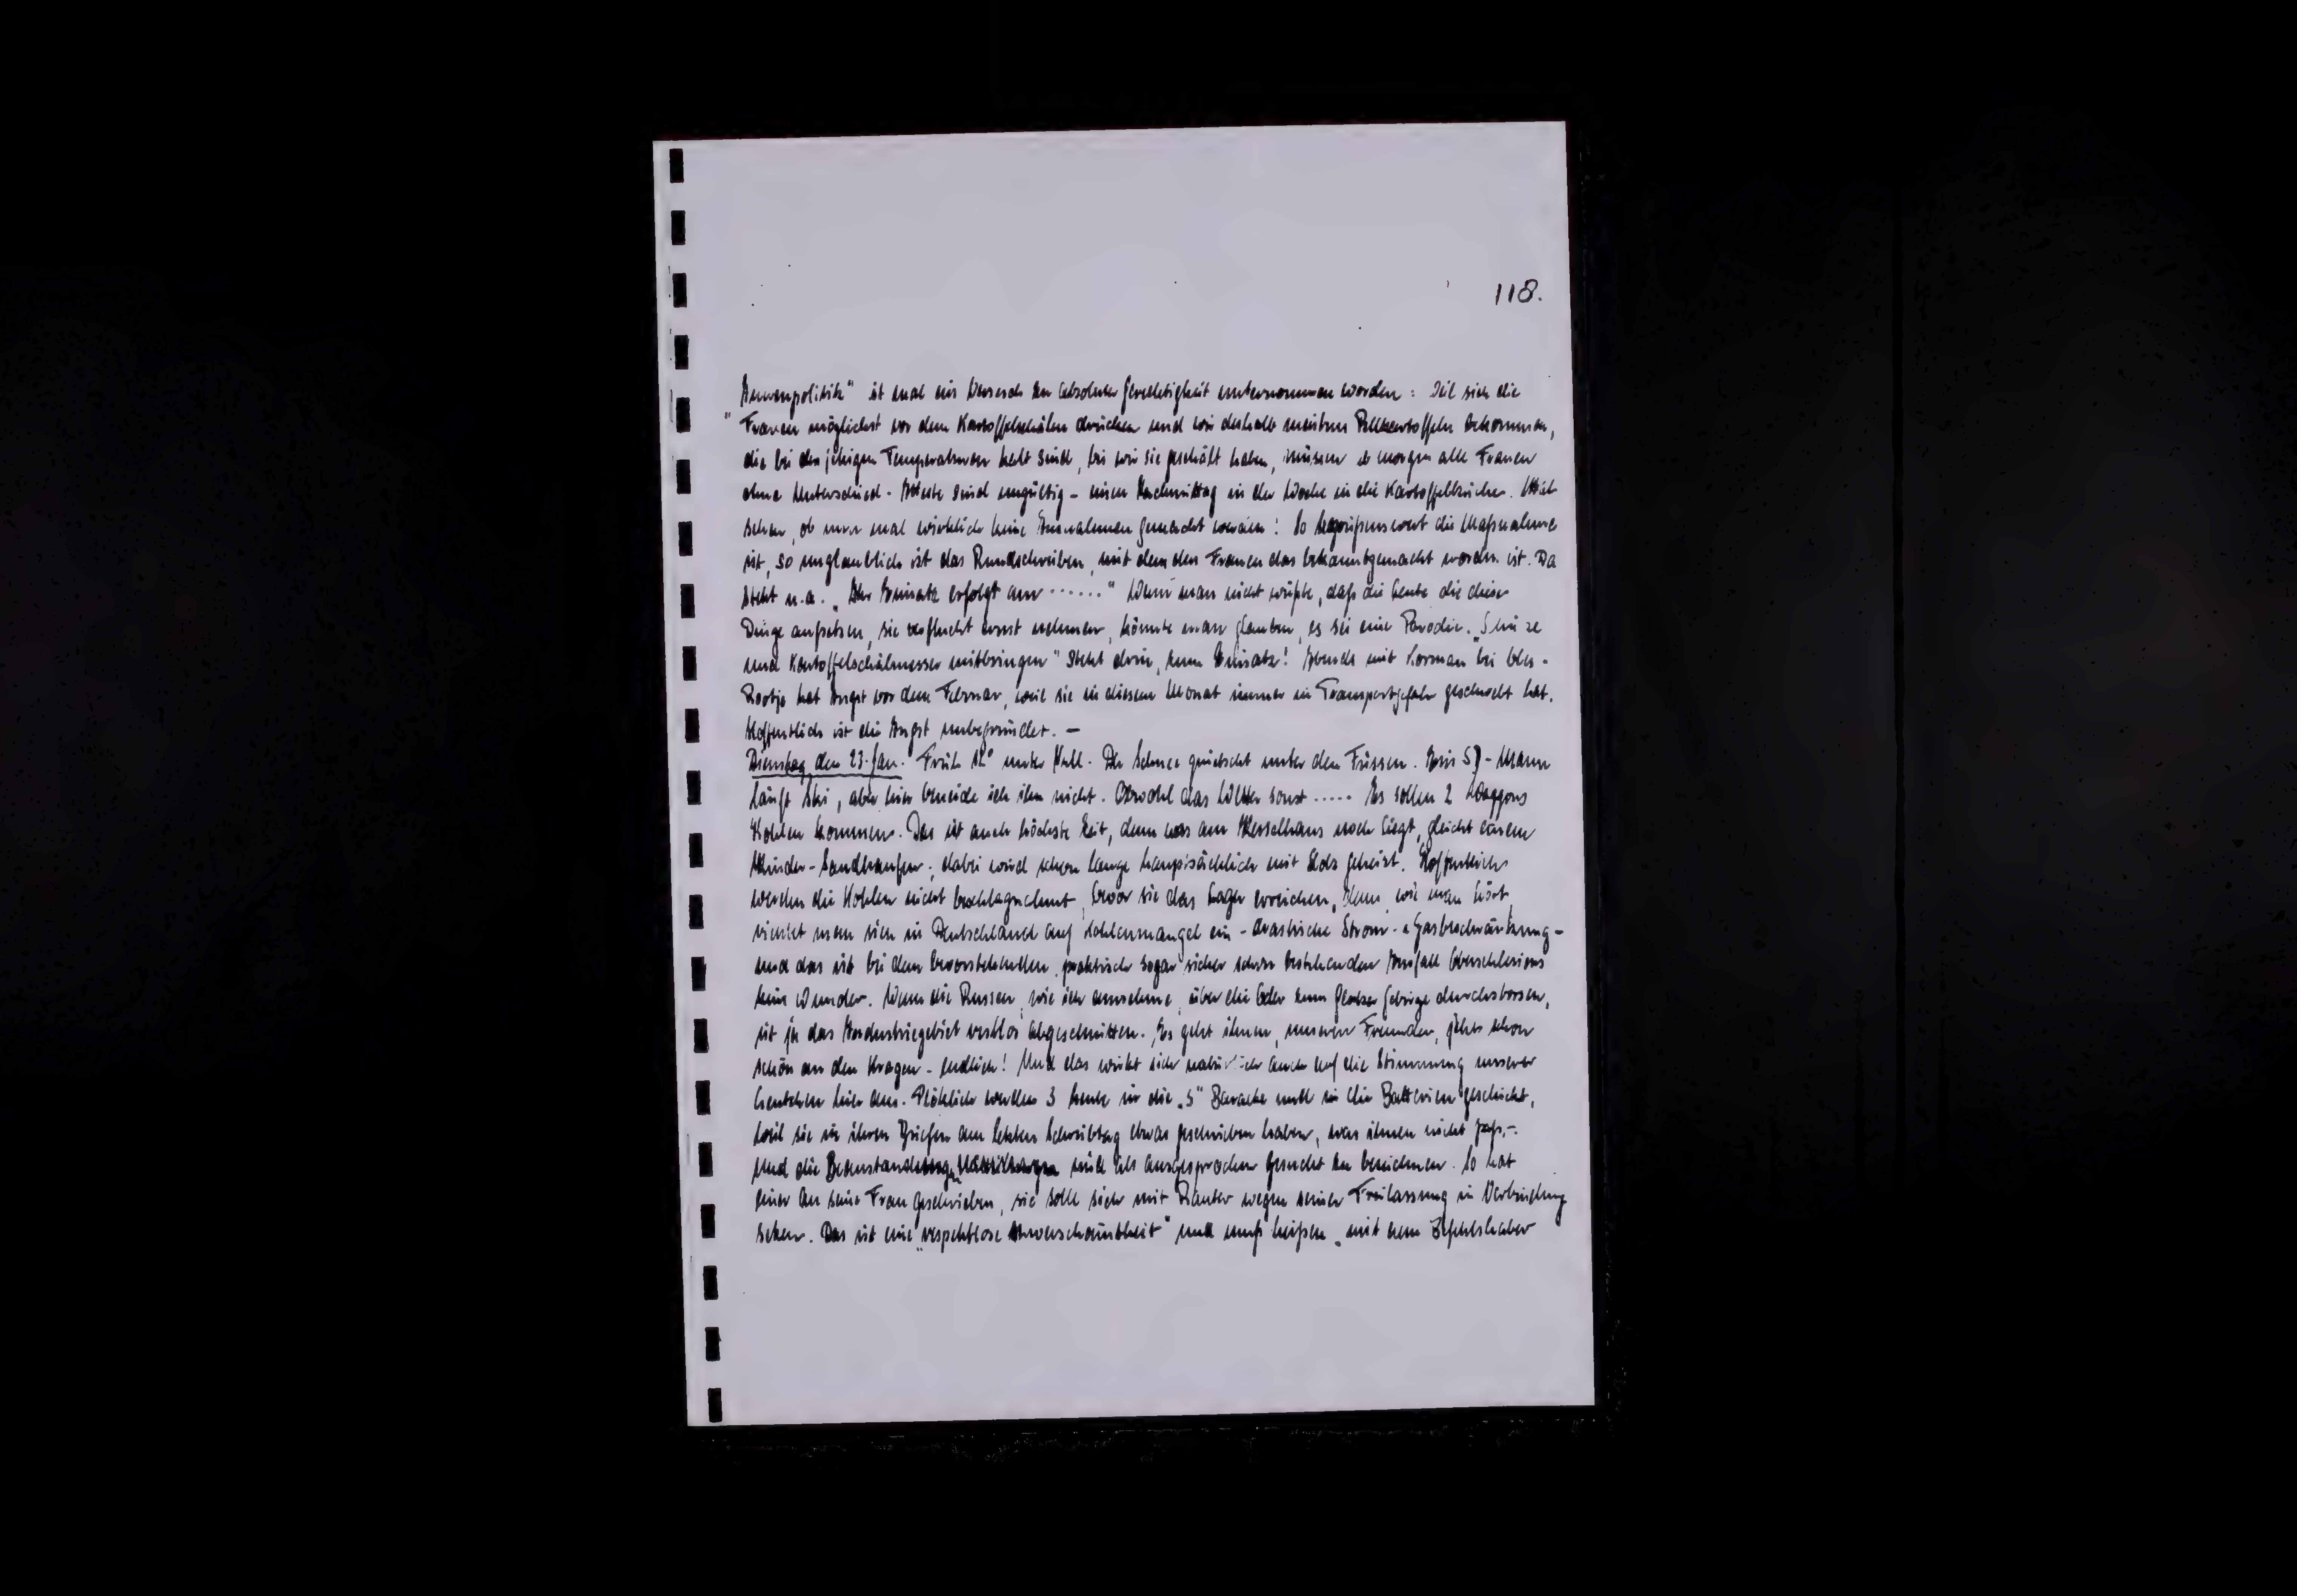 118.
"Innenpolitik" ist mal ein Versuch zu absoluter Gerechtigkeit unternommen worden: Weil sich die
Frauen möglichst vor dem Kartoffelschälen drücken und wir deshalb meistens Pellkartoffeln bekommen,
die bei den jetzigen Temperaturen kalt sind, bis wir sie geschält haben, müssen ab morgen alle Frauen
ohne Unterschied - Atteste sind ungültig - einen Nachmittag in der Woche in die Kartoffelküche. Mal
sehen, ob nun mal wirklich keine Ausnahmen gemacht werden! So begrüßenswert die Maßnahme
ist, so unglaublich ist das Rundschreiben, mit dem den Frauen das bekanntgemacht worden ist. Da
steht u.a. „Ihr Einsatz erfolgt am ......" Wenn man nicht wüßte, daß die Leute die diese
Dinge aufsetzen, sie verflucht ernst nehmen, könnte man glauben, es sei eine Parodie. „Schürze
und Kartoffelschälmesser mitbringen" steht drin, zum Einsatz! Abends mit Herman bei
Rootje hat Angst vor dem Februar, weil sie in diesem Monat immer in Transportgefahr geschwebt hat.
Hoffentlich ist die Angst unbegründet. -
Dienstag den 23. Jan. Früh 12° unter Null. Der Schnee quietscht unter den Füssen. Ein SD-Mann
läuft Ski, aber hier beneide ich ihn nicht. Obwohl das Wetter sonst ..... Es sollen 2 Waggons
Kohlen kommen. Das ist auch höchste Zeit, denn was am Kesselhaus noch liegt, gleicht einem
Kinder-Sandhaufen; dabei wird schon lange hauptsächlich mit Holz geheizt. Hoffentlich
werden die Kohlen nicht beschlagnahmt, bevor sie das Lager erreichen, denn, wie man hört,
richtet man sich in Deutschland auf Kohlenmangel ein - drastische Strom- u Gasbeschränkung -
und das ist bei dem bevorstehenden, praktisch sogar sicher schon bestehenden Ausfall Oberschlesiens
kein Wunder. Wenn die Russen, wie ich annehme, über die Oder zum Glatzer Gebirge durchstossen,
ist ja das Industriegebiet restlos abgeschnitten. Es geht ihnen, unseren Freunden, jetzt schon
schön an den Kragen - endlich! Und das wirkt sich natürlich auch auf die Stimmung unserer
Leutchen hier aus. Plötzlich werden 3 Leute in die „S" Baracke und in die Batterien geschickt,
weil sie in ihren Briefen am letzten Schreibtag etwas geschrieben haben, was ihnen nicht paßt.
Und die Beanstandungen sind als ausgesprochen gesucht zu bezeichnen. So hat
einer an seine Frau geschrieben, sie solle sich mit Rauter wegen seiner Freilassung in Verbindung
setzen. Das ist eine „respektlose Unverschämtheit" und muß heißen „mit dem Befehlshaber